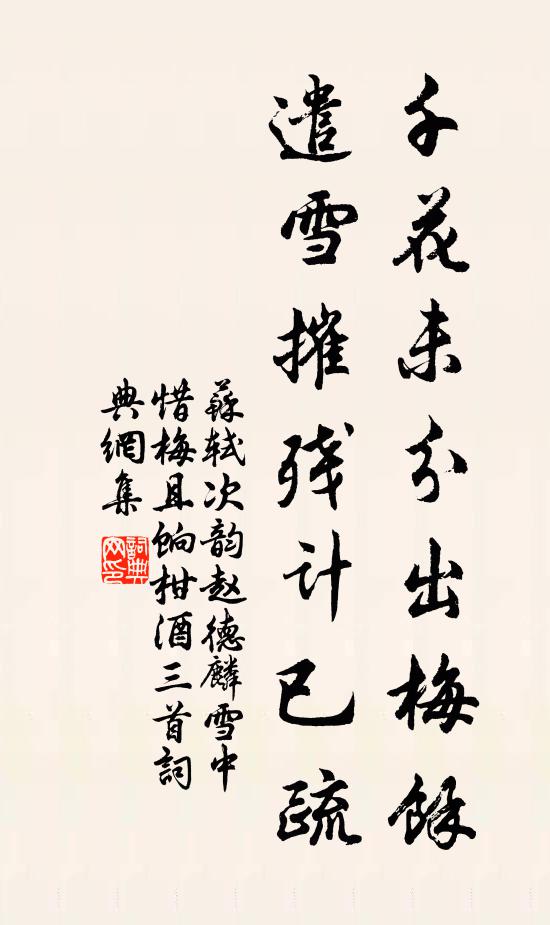 千花未分出梅餘
遣雪摧残计已疏
蘇軾次韵赵德麟雪中
惜梅且饷柑酒三首詞
典網集
詞典
网印